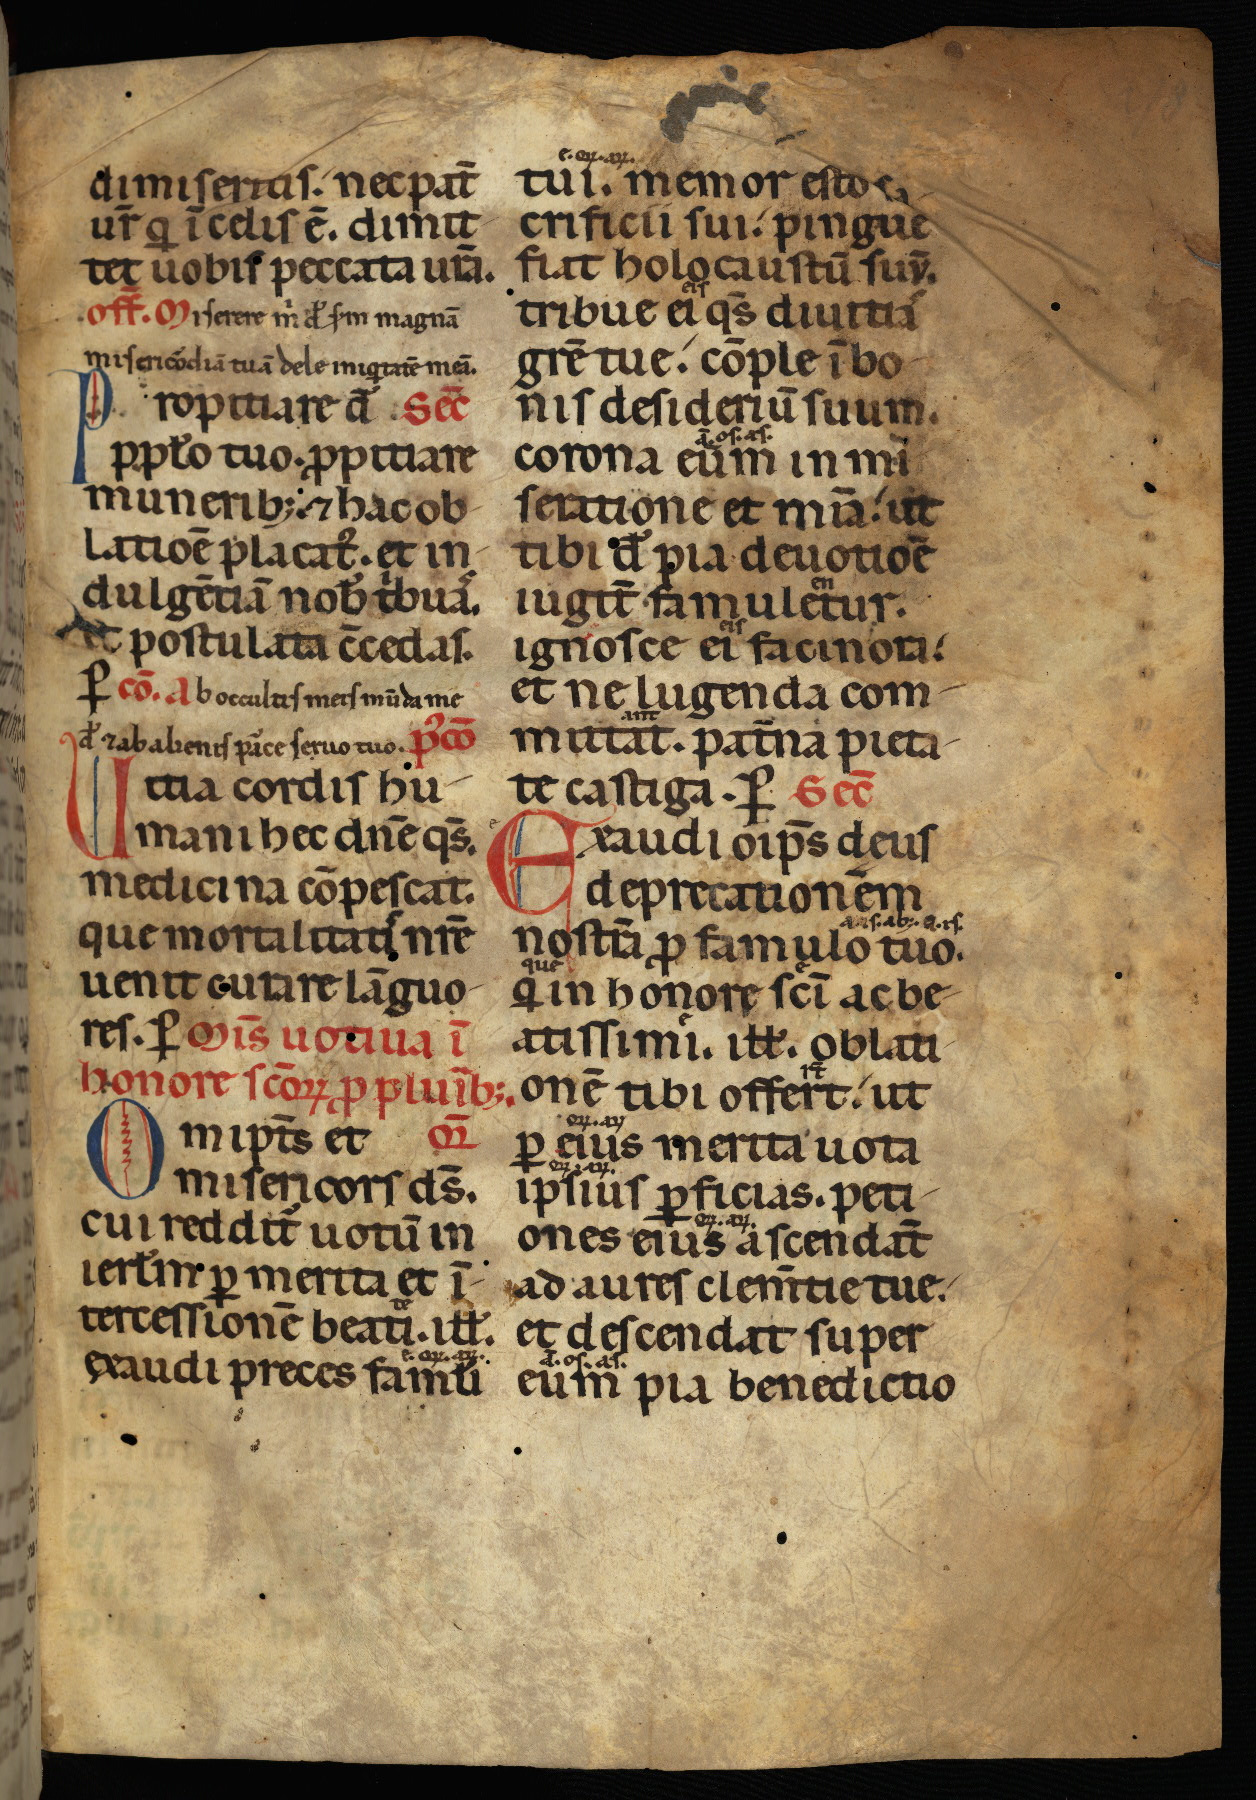 dimiseritis. nec pat̄
ur̄ q̄ ī celis ē. dimit
tet uobis peccata ur̄a.
off̄. Miserere m̄ d̄s sm magnā
misericōdiā tuā dele iniq̄tatē meā.
Propitiare d̄ Sec̄
ppło tuo. ꝓpitiare
munerib; ⁊ hac ob
latioē placat᷒. et in
dulgētiā nob̄ tͥbuā.
et postulata c̄cedas.
ꝑ cō. Ab occultis meis mūda me
d̄ ⁊ ab alienis pͣce seruo tuo. p᷒cō
Uitia cordis hu
mani hec dn̄e q̄s.
medicina cōpescat.
que mortalitatis nr̄e
uenit curare lāguo
res. ꝑ Mis̄ uotiua ī
honore scōꝝ ꝓ pluribꝫ.
Omip̄ts et or̄
misericors ds̄.
cui reddit᷒ uotū in
ierłm ꝑ merita et ī
te
tercessionē beati. ill̄.
e. oꝝ. aꝝ.
exaudi preces famuli
e. oꝝ. aꝝ.
tui. memor esto
crificii sui. pingue
fiat holocaustū suū.
eis
tribue ei q̄s diuitia
grē tue. cōple ī bo
nis desideriū suum.
ā. os. as.
corona eum in mi
seratione et mīa. ut
tibi d̄ pia deuotioē
en
iugit̄ famuletur.
eis
ignosce ei facinora.
et ne lugenda com
ant
mittat. pat̄na pieta
te castiga. ꝑ Sec̄
Exaudi oip̄s deus
deprecationem
nostrā ꝓ famulo tuo.
que e
q̄ in honore scī ac be
e
atissimi. ill̄. oblati
onē tibi offert. ut
oꝝ. aꝝ
ꝑ eius merita uota
oꝝ. aꝝ.
ipsius ꝑficias. peti
oꝝ. aꝝ.
ones eius ascendāt
ad aures clem̄tie tue.
et descendat super
ā. os. as.
eum pia benedictio